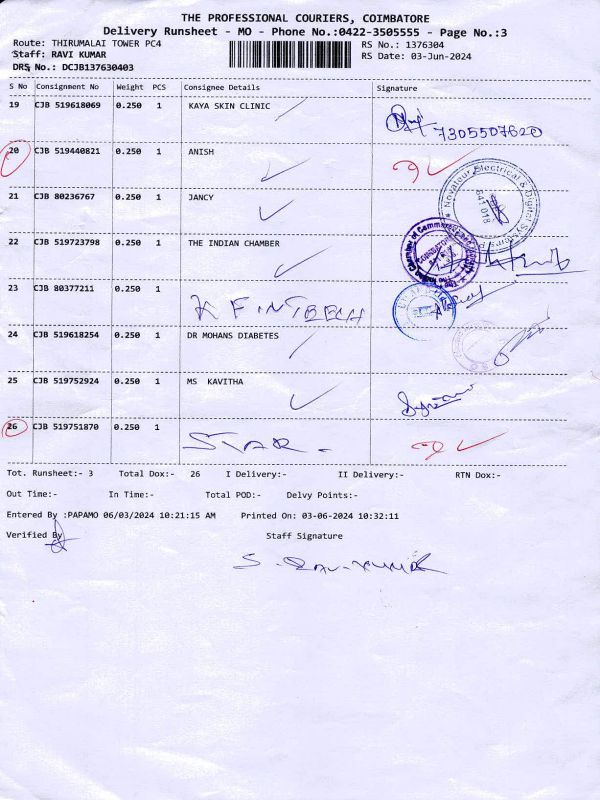 THE PROFESSIONAL COURIERS, COIMBATORE
Delivery Runsheet - MO - Phone No.:0422-3505555 - Page No.:3
Route: THIRUMALAI TOWER PC4 RS No.: 1376304
Staff: RAVI KUMAR RS Date: 03-Jun-2024
DRS No.: DCJB137630403
S No Consignment No Weight PCS Consignee Details Signature
19 CJB 519618069 0.250 1 KAYA SKIN CLINIC
7305507620
20 CJB 519440821 0.250 1 ANISH
21 CJB 80236767 0.250 1 JANCY
Novateur Electrical & Digital Systems
641 018
22 CJB 519723798 0.250 1 THE INDIAN CHAMBER
23 CJB 80377211 0.250 1 KFINTECH
24 CJB 519618254 0.250 1 DR MOHANS DIABETES
25 CJB 519752924 0.250 1 MS KAVITHA
26 CJB 519751870 0.250 1 STAR.
Tot. Runsheet:- 3 Total Dox:- 26 I Delivery:- II Delivery:- RTN Dox:-
Out Time:- In Time:- Total POD:- Delvy Points:-
Entered By :PAPAMO 06/03/2024 10:21:15 AM Printed On: 03-06-2024 10:32:11
Verified By Staff Signature
S. Ravi Kumar